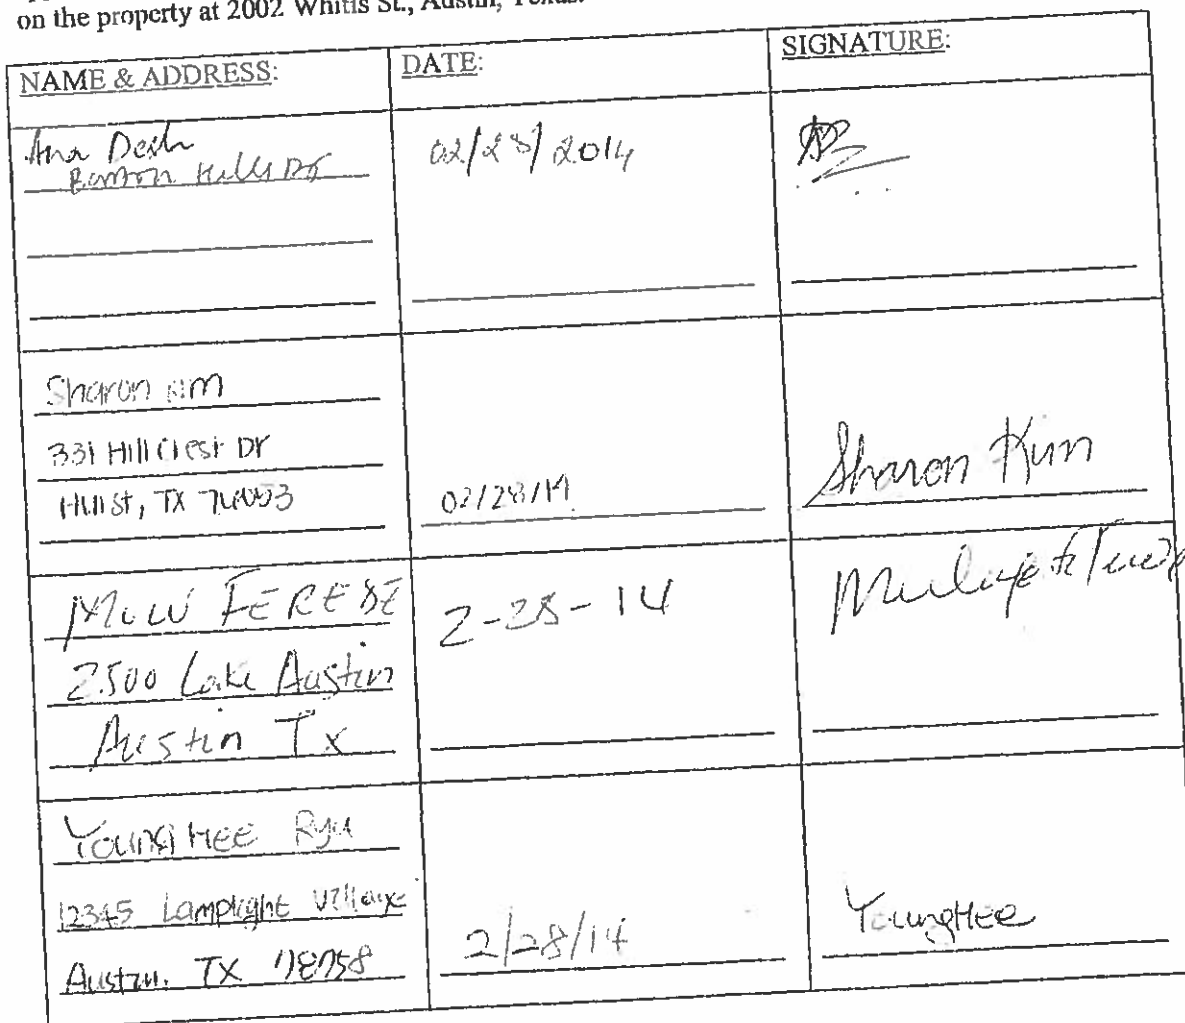 on the property at 2002 Whitis St., Austin, Texas.
NAME & ADDRESS:
DATE:
SIGNATURE:
Ana Desh
Barton Hills Dr
02/28/2014
Sharon Kim
331 Hillcrest Dr
Hurst, TX 76053
02/28/14
Sharon Kim
Mulu FEREDE
2500 Lake Austin
Austin Tx
2-28-14
YoungHee Ryu
12345 Lamplight Village
Austin. TX 78758
2/28/14
YoungHee